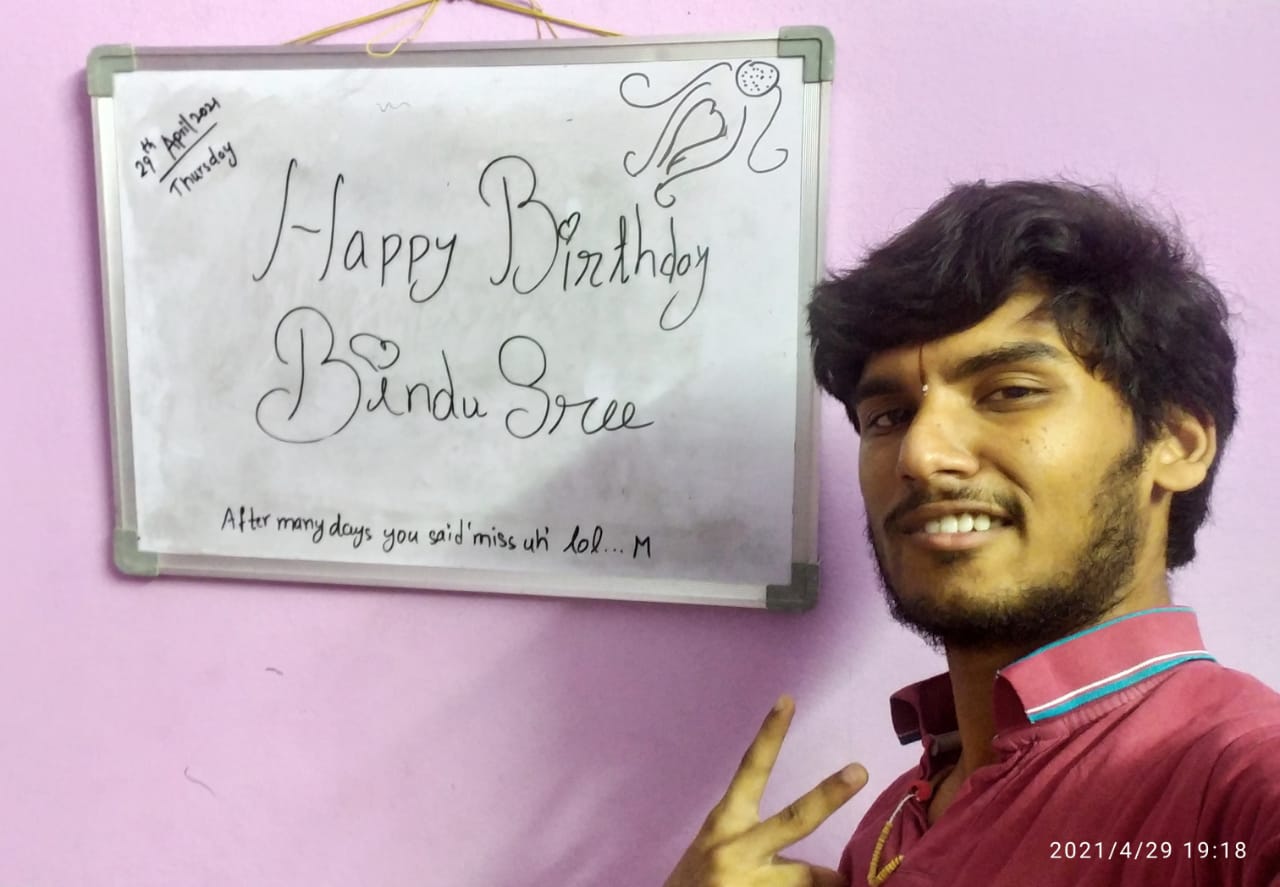 29th April 2021
Thursday
Happy Birthday
Bindu Sree
After many days you said 'miss uh' lol... M
2021/4/29 19:18